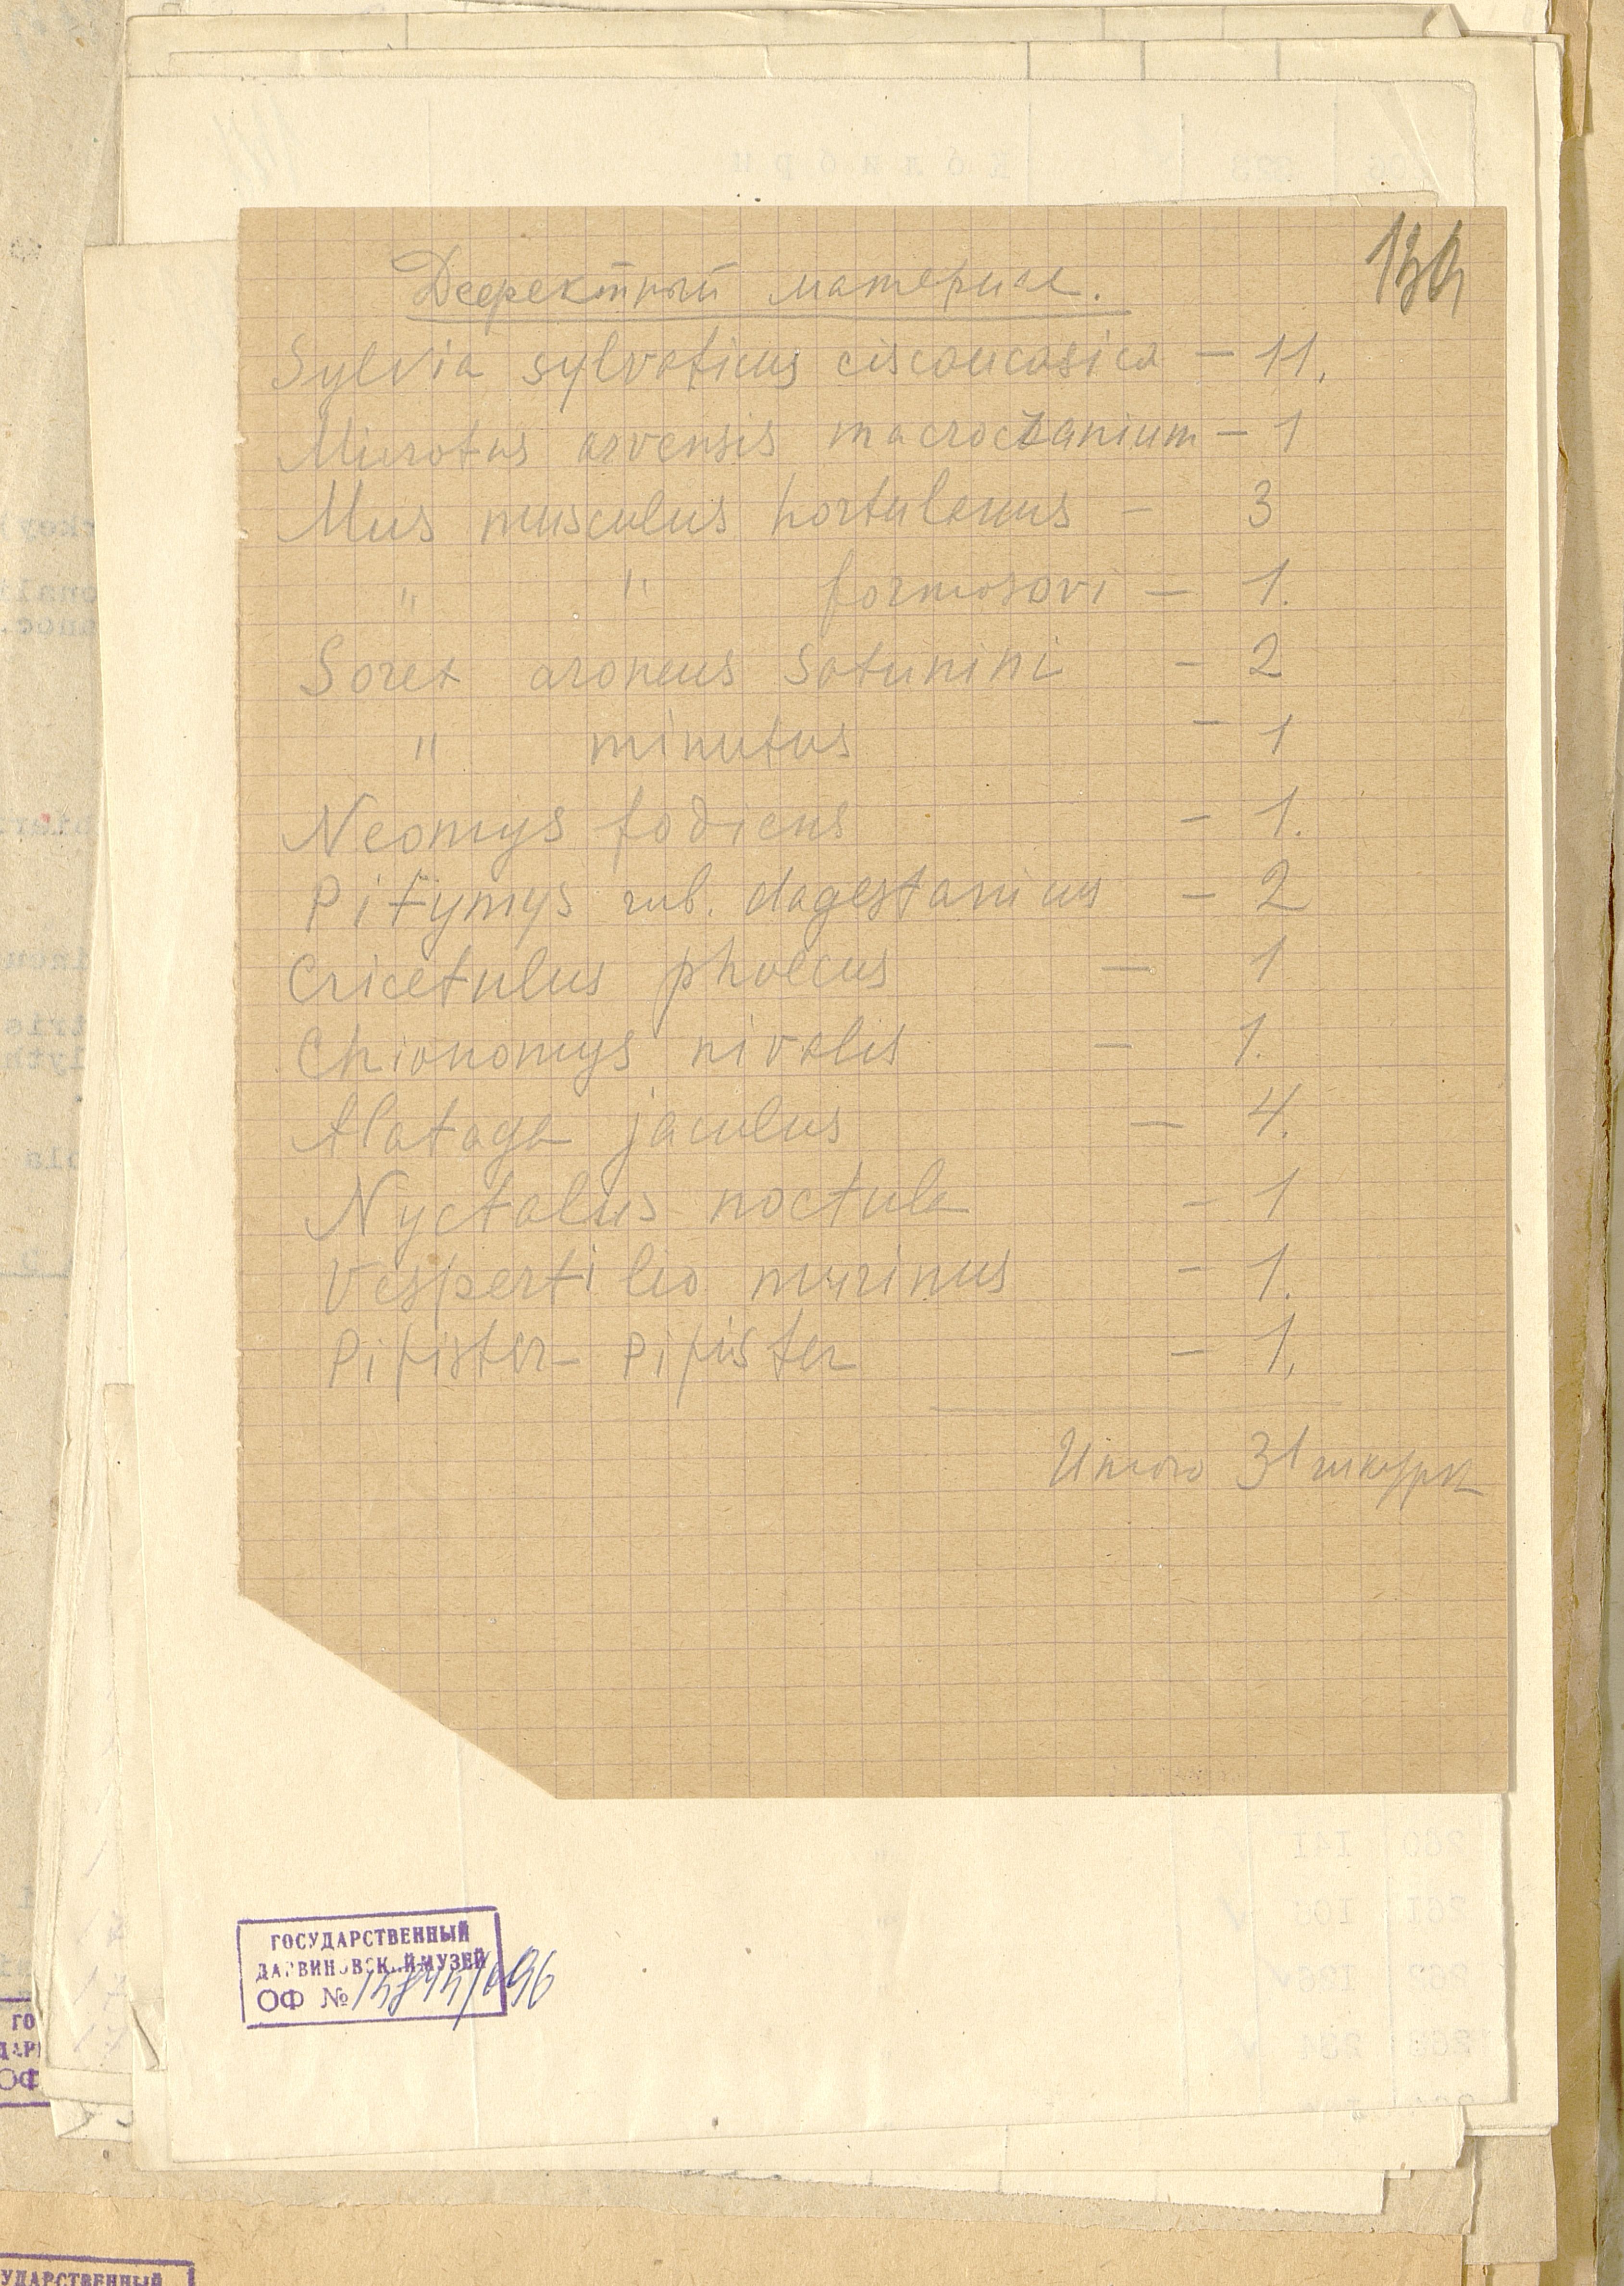 Дефектный материал.
Sylvia sylvaticus ciscaucasica — 11.
Microtus arvensis macrocranium — 1
Mus musculus hortulanus — 3
" " formosovi — 1.
Sorex araneus satunini — 2
" minutus — 1
Neomys fodiens — 1.
Pitymys rub. dagestanicus — 2
Cricetulus phoecus — 1
Chionomys nivalis — 1.
Alataga jaculus — 4.
Nyctalus noctula — 1
Vespertilio murinus — 1.
Pipister Pipister — 1.
Итого 31 шкурк
ГОСУДАРСТВЕННЫЙ
ДАРВИНОВСКИЙ МУЗЕЙ
ОФ №